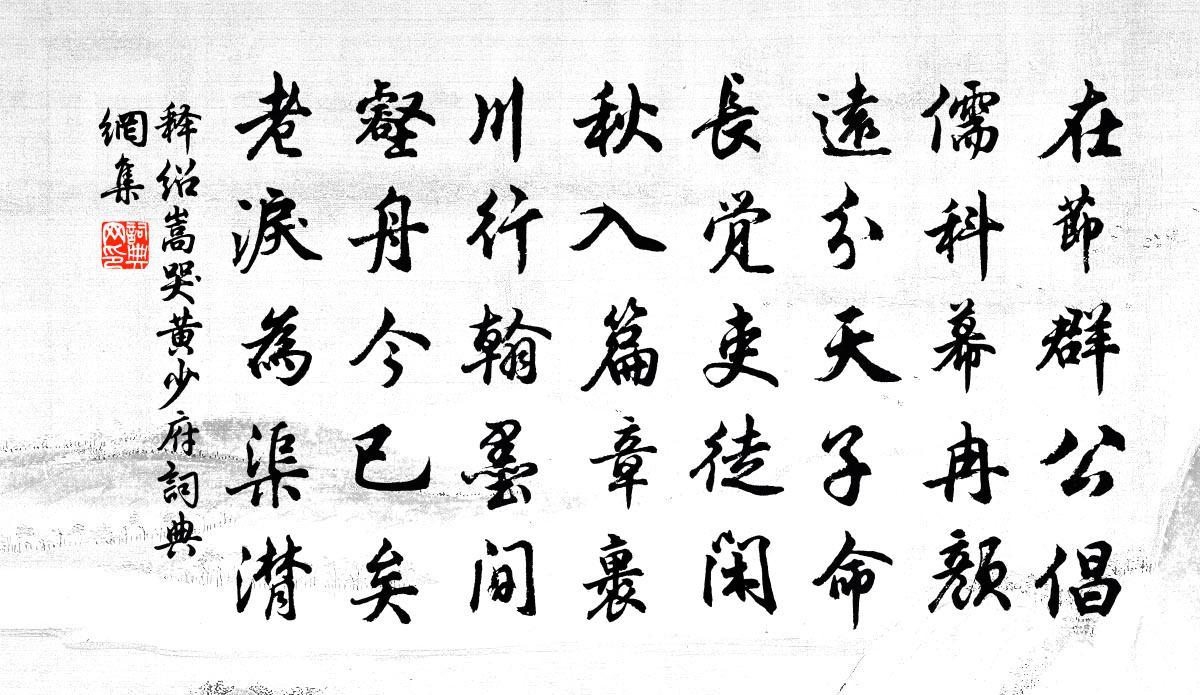 在節群公倡
儒科慕冉顔
遠分天子命
長覺吏徒閑
秋入篇章裏
川行翰墨間
壑舟今已矣
老淚為渠潸
释紹嵩哭黄少府詞典
網集
詞典
网印